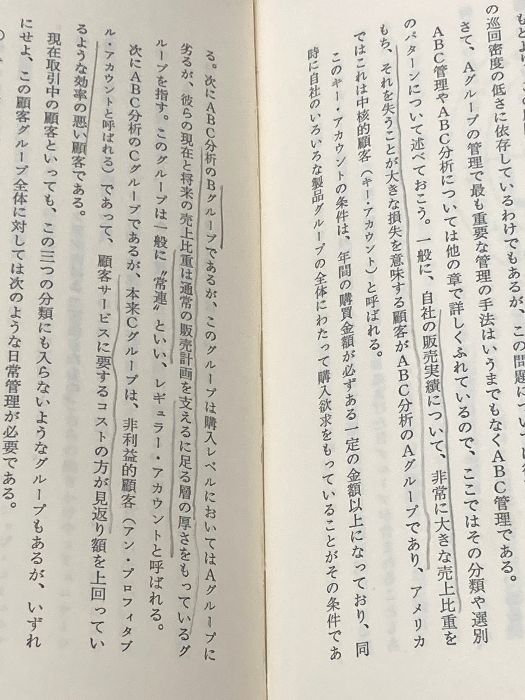 もとより、
の巡回密度の低さに依存しているわけでもあるが、この問題について
さて、Aグループの管理で最も重要な管理の手法はいうまでもなくABC管理である。
ABC管理やABC分析については他の章で詳しくふれているので、ここではその分類や選別
のパターンについて述べておこう。一般に、自社の販売実績について、非常に大きな売上比重を
もち、それを失うことが大きな損失を意味する顧客がABC分析のAグループであり、アメリカ
ではこれは中核的顧客（キー・アカウント）と呼ばれる。
このキー・アカウントの条件は、年間の購買金額が必ずある一定の金額以上になっており、同
時に自社のいろいろな製品グループの全体にわたって購入欲求をもっていることがその条件であ
る。次にABC分析のBグループであるが、このグループは購入レベルにおいてはAグループに
劣るが、彼らの現在と将来の売上比重は通常の販売計画を支えるに足る層の厚さをもっているグ
ループを指す。このグループは一般に〝常連〟といい、レギュラー・アカウントと呼ばれる。
次にABC分析のCグループであるが、本来Cグループは、非利益的顧客（アン・プロフィタブ
ル・アカウントと呼ばれる）であって、顧客サービスに要するコストの方が見返り額を上回ってい
るような効率の悪い顧客である。
現在取引中の顧客といっても、この三つの分類にも入らないようなグループもあるが、いずれ
にせよ、この顧客グループ全体に対しては次のような日常管理が必要である。